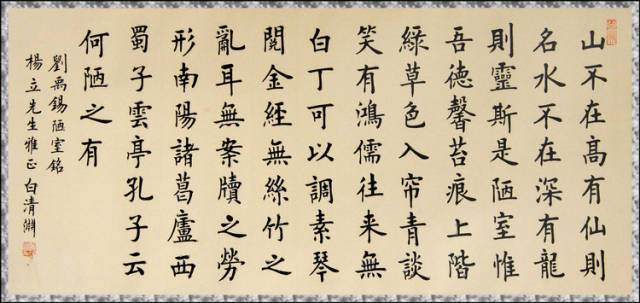 山不在高有仙則
名水不在深有龍
則靈斯是陋室惟
吾德馨苔痕上階
綠草色入帘青談
笑有鴻儒往来無
白丁可以調素琴
閱金經無絲竹之
亂耳無案牘之勞
形南陽諸葛廬西
蜀子雲亭孔子云
何陋之有
劉禹錫陋室銘
楊立先生雅正 白清